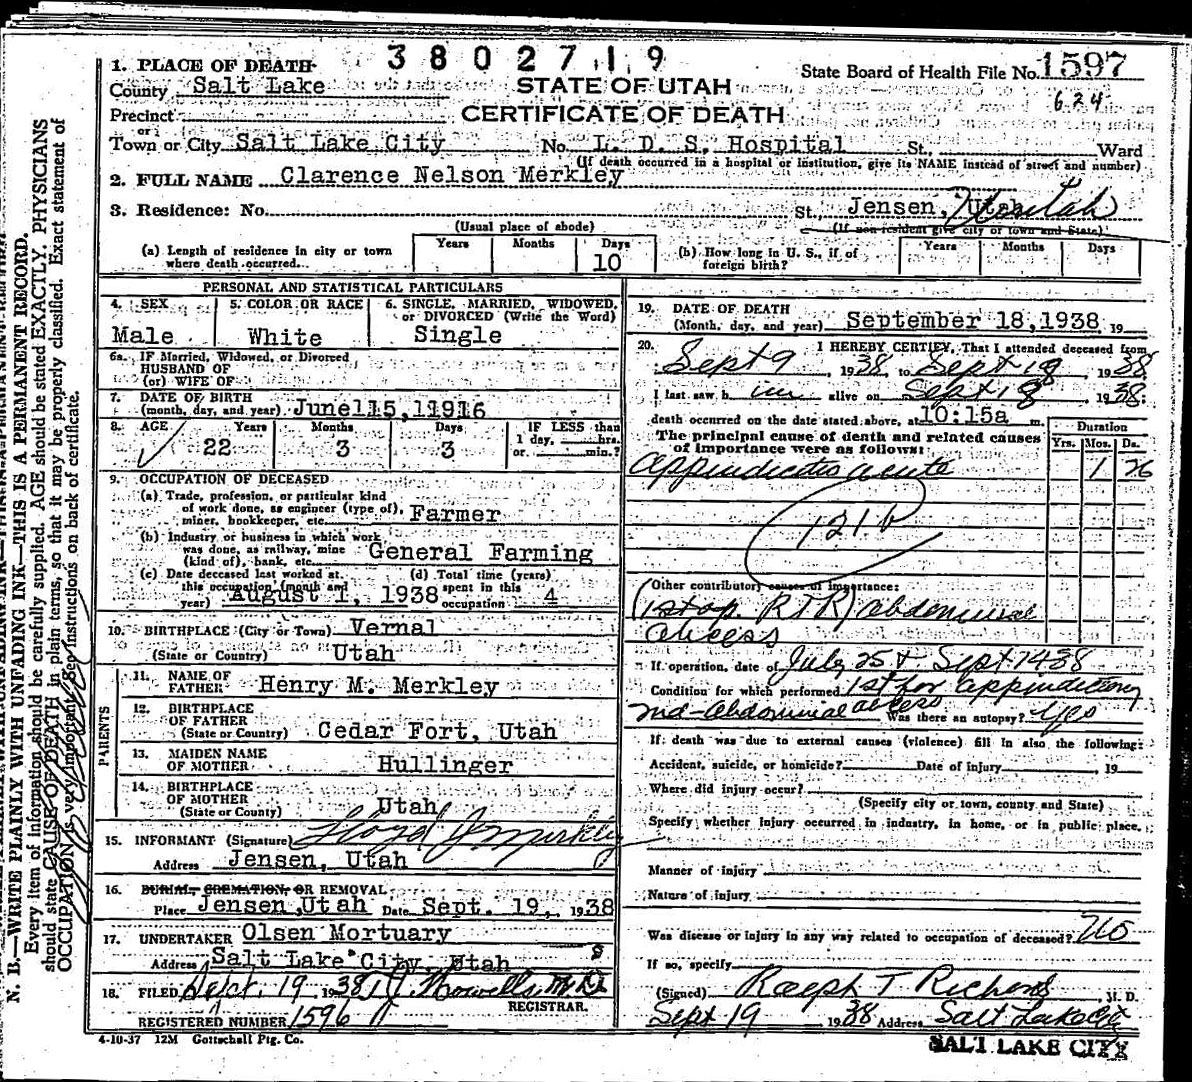 3802719
1. PLACE OF DEATH
County Salt Lake
STATE OF UTAH
State Board of Health File No. 1597
Precinct
CERTIFICATE OF DEATH
624
or
Town or City Salt Lake City No. L. D. S. Hospital St., Ward
(If death occurred in a hospital or institution, give its NAME instead of street and number)
2. FULL NAME Clarence Nelson Merkley
3. Residence: No. St., Jensen, Utah Uintah
(Usual place of abode)
(If non-resident give city or town and State)
(a) Length of residence in city or town where death occurred. Years Months Days 10
(b) How long in U. S., if of foreign birth? Years Months Days
PERSONAL AND STATISTICAL PARTICULARS
4. SEX Male
5. COLOR OR RACE White
6. SINGLE, MARRIED, WIDOWED, or DIVORCED (Write the Word) Single
6a. IF Married, Widowed, or Divorced
HUSBAND OF
(or) WIFE OF
7. DATE OF BIRTH
(month, day, and year) June 15, 1916
8. AGE 22 Years 3 Months 3 Days
IF LESS than 1 day, hrs. or min.?
9. OCCUPATION OF DECEASED
(a) Trade, profession, or particular kind
of work done, as engineer (type of),
miner, bookkeeper, etc. Farmer
(b) Industry or business in which work
was done, as railway, mine
(kind of), bank, etc. General Farming
(c) Date deceased last worked at
this occupation (month and
year) August 1, 1938
(d) Total time (years)
spent in this
occupation 4
10. BIRTHPLACE (City or Town) Vernal
(State or Country) Utah
PARENTS
11. NAME OF
FATHER Henry M. Merkley
12. BIRTHPLACE
OF FATHER
(State or Country) Cedar Fort, Utah
13. MAIDEN NAME
OF MOTHER Hullinger
14. BIRTHPLACE
OF MOTHER
(State or Country) Utah
15. INFORMANT (Signature) Lloyd J Merkley
Address Jensen, Utah
16. BURIAL, CREMATION, OR REMOVAL
Place Jensen, Utah Date Sept. 19, 1938
17. UNDERTAKER Olsen Mortuary
Address Salt Lake City, Utah
18. FILED Sept. 19 1938 M.D.
REGISTRAR.
REGISTERED NUMBER 1596
19. DATE OF DEATH
(Month, day, and year) September 18, 1938, 19
20. I HEREBY CERTIFY, That I attended deceased from
Sept 9, 1938, to Sept 18, 1938
I last saw him alive on Sept 18 1938;
death occurred on the date stated above, at 10:15a m.
The principal cause of death and related causes
of importance were as follows:
Duration
Yrs. Mos. Ds.
Appendicitis acute 1 26
121b
Other contributory causes of importance:
(1st op. RTR) abdominal
abcess
If operation, date of July 25 & Sept 14 38
Condition for which performed 1st for appendectomy
2nd-Abdominal abcess Was there an autopsy? Yes
If death was due to external causes (violence) fill in also the following:
Accident, suicide, or homicide? Date of injury , 19
Where did injury occur?
(Specify city or town, county and State)
Specify whether injury occurred in industry, in home, or in public place.
Manner of injury
Nature of injury
Was disease or injury in any way related to occupation of deceased? No
If so, specify
(Signed) Ralph T Richards, M. D.
Sept 19 1938 Address Salt Lake City
SALT LAKE CITY
4-10-37 12M Gottschall Ptg. Co.
N. B.—WRITE PLAINLY WITH UNFADING INK—THIS IS A PERMANENT RECORD.
Every item of information should be carefully supplied. AGE should be stated EXACTLY. PHYSICIANS
should state CAUSE OF DEATH in plain terms, so that it may be properly classified. Exact statement of
OCCUPATION is very important. See instructions on back of certificate.